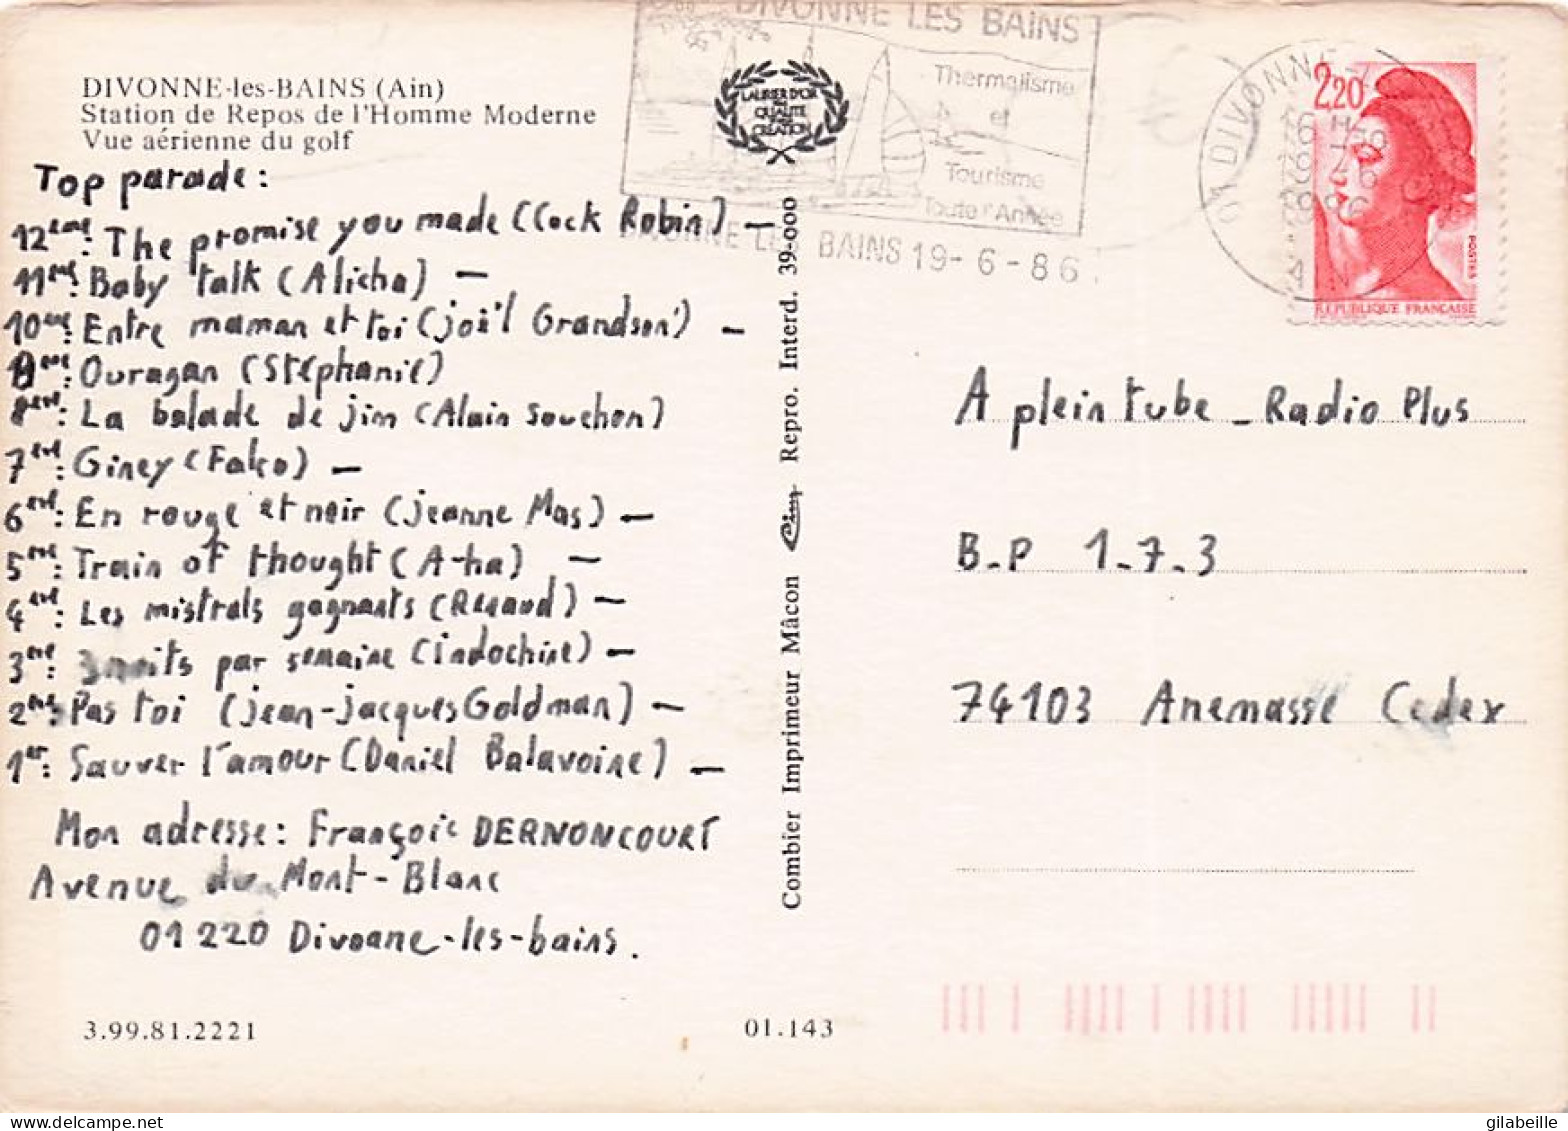 DIVONNE-les-BAINS (Ain)
Station de Repos de l'Homme Moderne
Vue aérienne du golf
Top parade:
12ème: The promise you made (Cock Robin) —
11ème: Baby talk (Alicha) —
10ème: Entre maman et toi (joë'l Grandson') —
9ème: Ouragan (Stéphanie)
8ème: La balade de jim (Alain Souchon)
7ème: Giney (Falco) —
6ème: En rouge et noir (jeanne Mas) —
5ème: Train of thought (A-ha) —
4ème: Les mistrals gagnants (Renaud) —
3ème: 3 nuits par semaine (indochine) —
2ème: Pas toi (jean-jacques Goldman) —
1er: Sauver l'amour (Daniel Balavoine) —
Mon adresse: Françoic DERNONCOURT
Avenue du Mont-Blanc
01220 Divonne-les-bains.
3.99.81.2221
01.143
Combier Imprimeur Mâcon Cim Repro. Interd. 39-000
LAURIER D'OR
QUALITE
CREATION
DIVONNE LES BAINS
Thermalisme
et
Tourisme
Toute l'Année
DIVONNE LES BAINS 19-6-86
01 DIVONNE
2,20
POSTES
REPUBLIQUE FRANCAISE
A plein tube - Radio Plus
B.P 1.7.3
74103 Anemasse Cedex
gilabeille